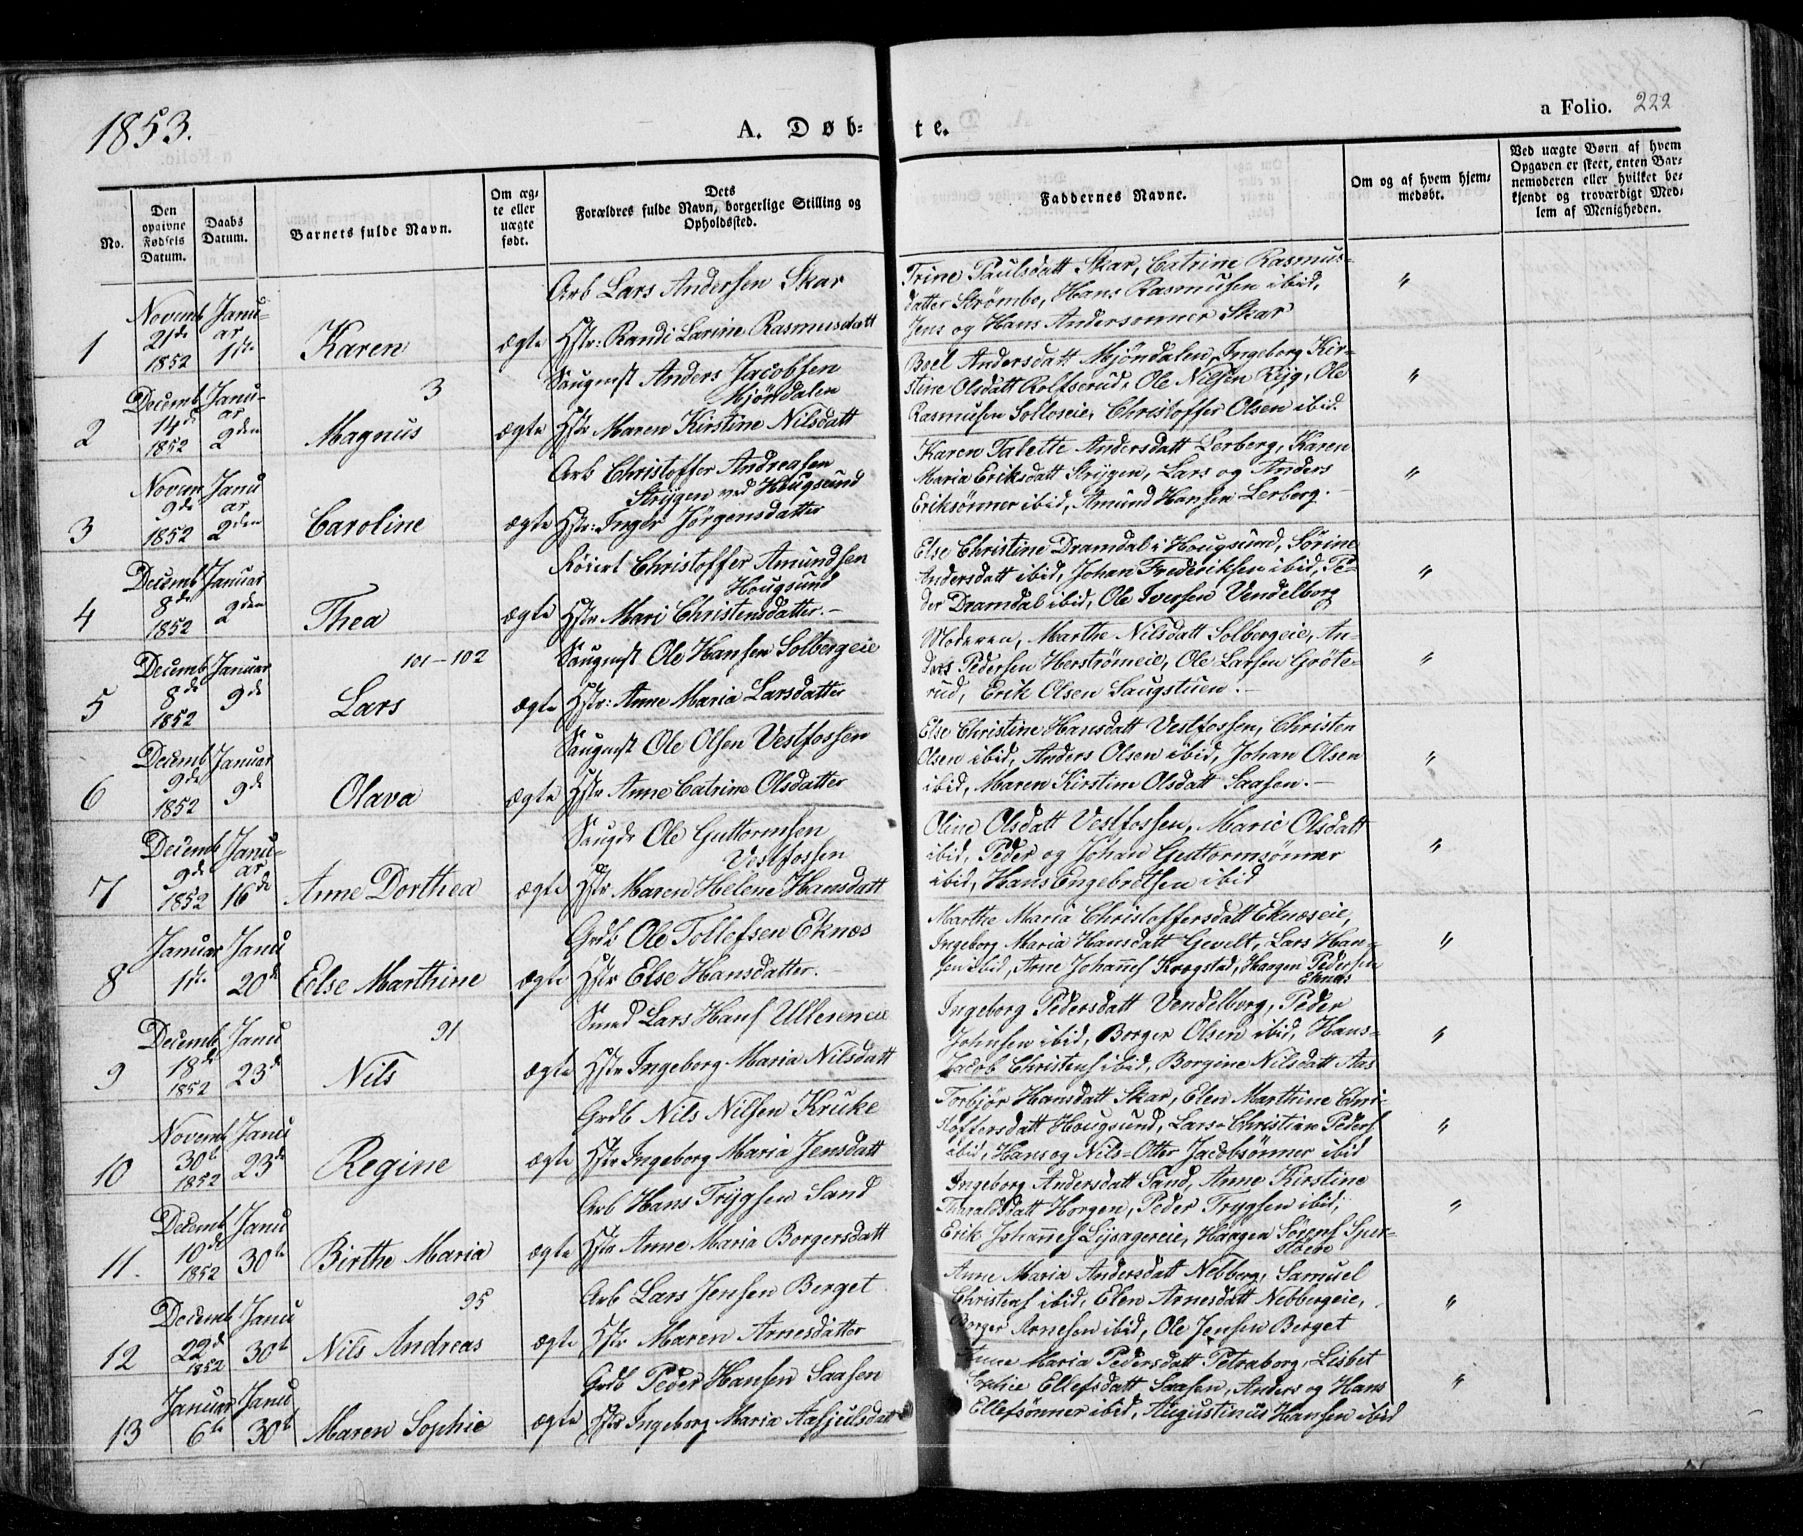 1853.
A. Døb-
te.
a Folio. 222
No.
Den
opgivne
Fødsels
Datum.
Daabs
Datum.
Barnets fulde Navn.
Om æg-
te eller
uægte
født.
Dets
Forældres fulde Navn, borgerlige Stilling og
Opholdssted.
Faddernes Navne.
Om og af hvem hjem-
medøbt.
Ved uægte Børn af hvem
Opgaven er skeet, enten Bar-
nemoderen eller hvilket be-
kjendt og troværdigt Med-
lem af Menigheden.
1
Novemb
21de
1852
Janu-
ar
1ste
Karen
ægte
Arb Lars Andersen Skar
Hstr: Randi Larine Rasmusdatt
Trine Paulsdatt Skar, Catrine Rasmus-
datter Strømbo, Hans Rasmusen ibid,
Jens og Hans Andersønner Skar
"
2
Decemb
14de
1852
Janu-
ar
2den
3
Magnus
ægte
Saugmst Anders Jacobsen
Mjöndalen
Hstr Maren Kirstine Nilsdatt
Beel Andersdatt Mjöndalen, Ingeborg Kir-
stine Olsdatt Rolfserud, Ole Nilsen Ryg, Ole
Rasmusen Solloseie, Christoffer Olsen ibid.
"
3
Novem
9de
1852
Janu
ar
2den
Caroline
ægte
Arb Christoffer Andreasen
Strygen ved Hougsund
Hstr: Inger Jörgensdatter
Karen Talette Andersdatt Lerberg, Karen
Maria Eriksdatt Strygen, Lars og Anders
Eriksønner ibid, Amund Hansen Lerberg.
"
4
Decemb
8de
1852
Januar
2den
Thea
ægte
Christoffer Amundsen
Hougsund
Hstr Mari Christensdatter.-
Else Christine Dramdal i Hougsund, Sörine
Andersdatt ibid, Johan Frederiksen ibid, Pe-
der Dramdal ibid, Ole Iversen Vendelborg
"
5
Decemb
8de
1852
Januar
9de
101-102
Lars
ægte
Saugmst Ole Hansen Solbergeie
Hstr: Anne Maria Larsdatter
Moderen, Marthe Nilsdatt Solbergeie, An-
ders Pedersen Herströmeie, Ole Larsen Gröte-
rud, Erik Olsen Saugstuen.-
"
6
Decemb
9de
1852
Januar
9de
Olava
ægte
Saugmst Ole Olsen Vestfossen
Hstr Anne Catrine Olsdatter
Else Christine Hansdatt Vestfossen, Christen
Olsen ibid, Anders Olsen ibid, Johan Olsen
ibid, Maren Kirstine Olsdatt Saasen.-
"
7
Decemb
9de
1852
Janu-
ar
16de
Anne Dorthea
ægte
Saugdr Ole Guttormsen
Vestfossen
Hstr Maren Helene Hansdatt
Oline Olsdatt Vestfossen, Marie Olsdatt
ibid, Peder og Johan Guttormsønner
ibid, Hans Engebretsen ibid
"
8
Januar
1ste
Janu
20de
Else Marthine
ægte
Grdb Ole Tollefsen Eknes
Hstr Else Hansdatter.-
Marthe Maria Christoffersdatt Ekneseie,
Ingeborg Maria Hansdatt Gevelt, Lars Han-
sen ibid, Arne Johannes Krogstad, Haagen Pedersen
Eknes
"
9
Decemb
18de
1852
Janu
23de
91
Nils
ægte
Smed Lars Hans Ullereneie
Hstr Ingeborg Maria Nilsdatt
Ingeborg Pedersdatt Vendelborg, Peder
Johnsen ibid, Borger Olsen ibid, Hans-
Jacob Christens ibid, Borgine Nilsdatt Aas
"
10
Novemb
30te
1852
Janu
23de
Regine
ægte
Grdb Nils Nilsen Kruke
Hstr Ingeborg Maria Jensdatt
Torbjør Hansdatt Skar, Elen Marthine Chri-
stoffersdatt Hougsund, Lars Christian Peders
ibid, Hans og Nils-Otter Jacobsønner ibid
"
11.
Decemb
10de
1852
Janu
30te
Birthe Maria
ægte
Arb Hans Trygsen Sand
Hstr Anne Maria Borgersdatt
Ingeborg Andersdatt Sand, Anne Kirstine
Tharaldsdatt Horgen, Peder Trygsen ibid;
Erik Johannes Lysagereie, Haagen Sörens Sper-
"
12
Decemb
22de
1852
Janu
30te
95
Nils Andreas
ægte
Arb Lars Jensen Berget
Hstr Maren Arnesdatter
Anne Maria Andersdatt Nebberg, Samuel
Christens ibid, Elen Arnesdatt Nebbergeie,
Borger Arnesen ibid, Ole Jensen Berget
"
13
Januar
6te
Janu
30te
Maren Sophie
ægte
Grdb Peder Hansen Saasen
Hstr Ingeborg Maria Aasjulsdatt
Anne Maria Pedersdatt Petraborg, Lisbet
Sophie Ellefsdatt Saasen, Anders og Hans
Ellefsønner ibid, Augustinus Hansen ibid
"